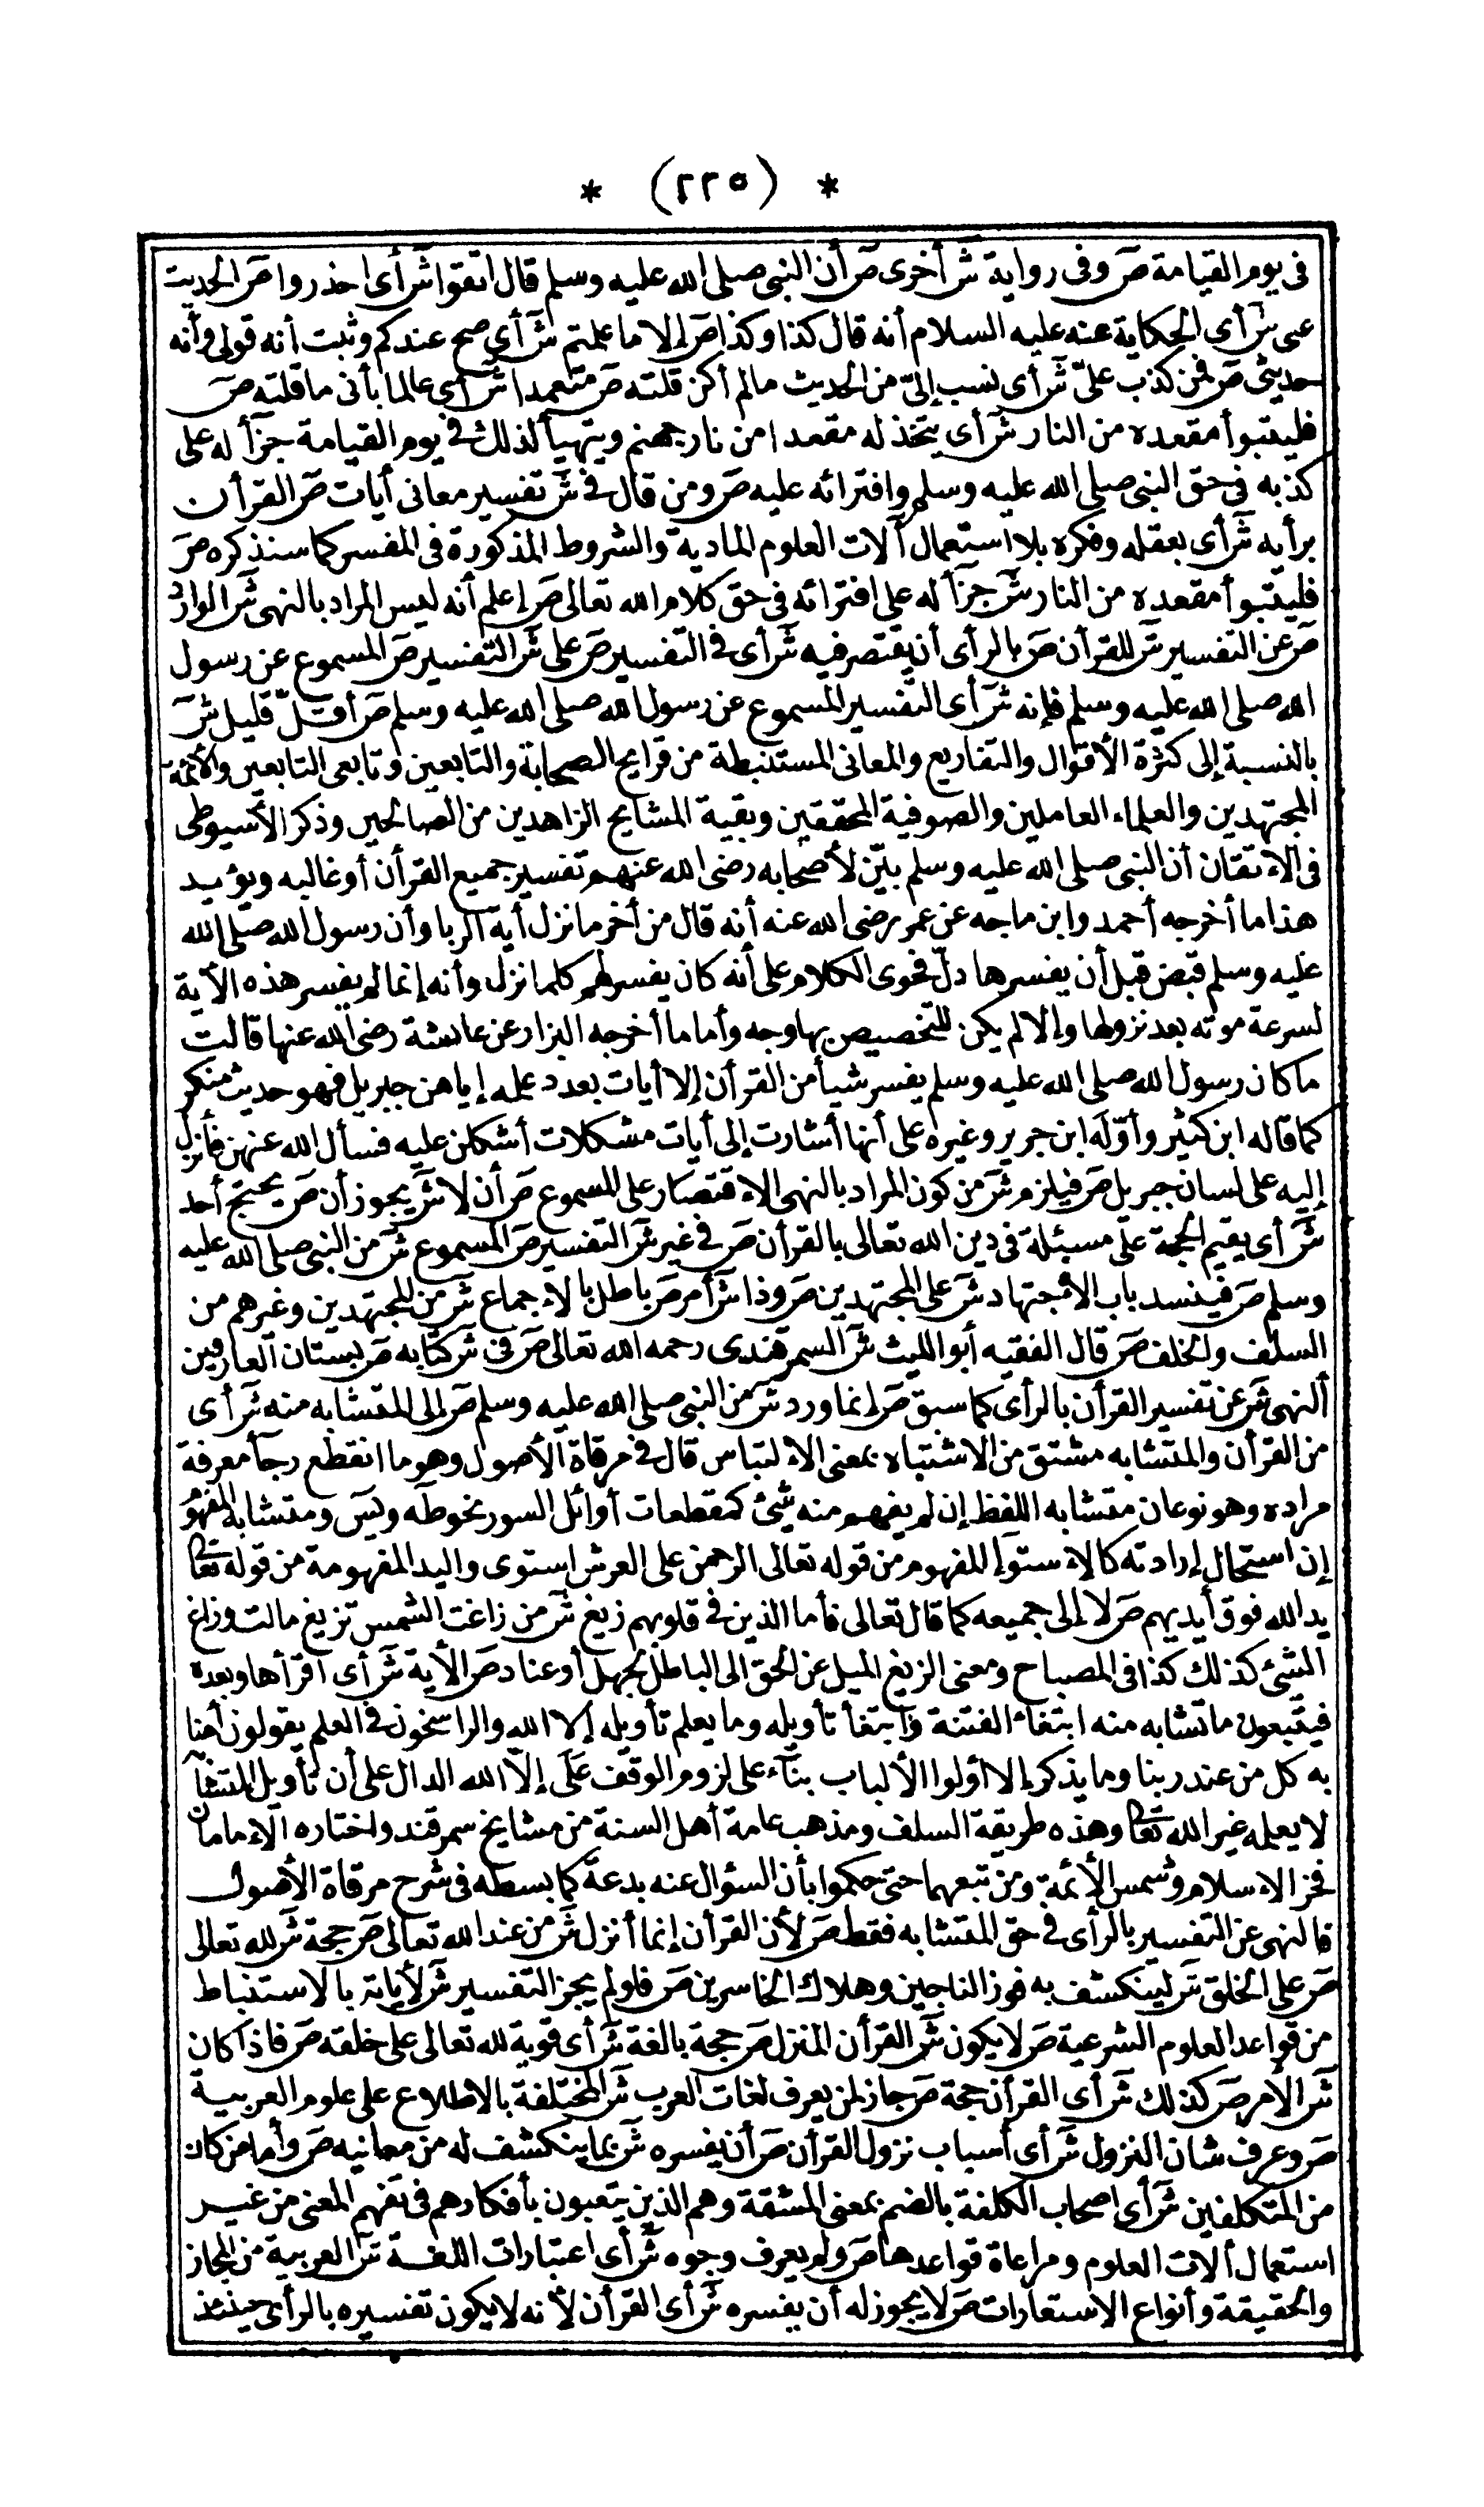 * (٢٢٥) *
فى يوم القيامة صَ وفى رواية شَ أخرى صَ أن النبى صلى الله عليه وسلم قال اتقوا شَ أى احذروا صَ الحديث
عنى شَ أى الحكاية عنه عليه السلام أنه قال كذا وكذا صَ إلا ما علمتم شَ أى صح عندكم وثبت أنه قولى وأنه
حديثى صَ فمن كذب علىّ شَ أى نسب إلىّ من الحديث مالم أكن قلته صَ متعمدا شَ أى عالما بأنى ما قلته صَ
فليتبوأ مقعده من النار شَ أى يتخذ له مقعدا من نار جهنم ويتهيأ لذلك فى يوم القيامة جزآ له على
كذبه فى حق النبى صلى الله عليه وسلم وافترائه عليه صَ ومن قال فى شَ تفسير معانى أيات صَ القرأن
برأيه شَ أى بعقله وفكره بلا استعمال آلات العلوم المادية والشروط المذكورة فى المفسر كما سنذكره صَ
فليتبوأ مقعده من النار شَ جزآ له على افترائه فى حق كلام الله تعالى صَ إعلم أنه ليس المراد بالنهى شَ الوارد
صَ عن التفسير شَ للقرأن صَ بالرأى أن يقتصر فيه شَ أى فى التفسير صَ على شَ التفسير صَ المسموع عن رسول
الله صلى الله عليه وسلم فإنه شَ أى التفسير المسموع عن رسول الله صلى الله عليه وسلم صَ أقلّ قليل شَ
بالنسبة إلى كثرة الأقوال والتفاريع والمعانى المستنبطة من قرايح الصحابة والتابعين وتابعى التابعين والأئمة
المجتهدين والعلماء العاملين والصوفية المحققين وبقية المشايخ الزاهدين من الصالحين وذكر الأسيوطى
فى الاءتقان أن النبى صلى الله عليه وسلم بيّن لأصحابه رضى الله عنهم تفسير جميع القرأن أو غالبه ويؤيد
هذا ما أخرجه أحمد وابن ماجه عن عمر رضى الله عنه أنه قال من أخر ما نزل أية الربا وأن رسول الله صلى الله
عليه وسلم قبض قبل أن يفسرها دلّ فحوى الكلام على أنه كان يفسر لهم كلما نزل وأنه إنما لم يفسر هذه الآية
لسرعة موته بعد نزولها وإلا لم يكن للتخصيص بها وجه وأما ما أخرجه البزار عن عائشة رضى الله عنها قالت
ما كان رسول الله صلى الله عليه وسلم يفسر شيأ من القرأن إلا أيات بعدد علمه إياهن جبريل فهو حديث منكر
كما قاله ابن كثير وأوّله ابن جرير وغيره على أنها أشارت إلى أيات مشكلات أشكلن عليه فسأل الله عنهن فأنزل
إليه على لسان جبريل صَ فيلزم شَ من كون المراد بالنهى الاءقتصار على المسموع صَ أن لا شَ يجوز أن صَ يحتج أحد
شَ أى يقيم الحجة على مسئلة فى دين الله تعالى بالقرأن صَ فى غير شَ التفسير صَ المسموع شَ من النبى صلى الله عليه
وسلم صَ فينسد باب الاءجتهاد شَ على المجتهدين صَ وذا شَ أمر صَ باطل بالاءجماع شَ من المجتهدين وغيرهم من
السلف والخلف صَ قال الفقيه أبو الليث شَ السمرقندى رحمه الله تعالى صَ فى شَ كتابه صَ بستان العارفين
ألنهى شَ عن تفسير القرأن بالرأى كما سبق صَ إنما ورد شَ من النبى صلى الله عليه وسلم صَ إلى المتشابه منه شَ أى
من القرأن والمتشابه مشتق من الاشتباه بمعنى الاءلتباس قال فى مرقاة الأصول وهو ما انقطع رجآ معرفة
مراده وهو نوعان متشابه اللفظ إن لم يفهم منه شئ كمقطعات أوائل السور نحو طه ويس ومتشابه المفهوم
إن استحال إرادته كالاءستوإ المفهوم من قوله تعالى الرحمن على العرش استوى واليد المفهومة من قوله تعالى
يد الله فوق أيديهم صَ لا إلى جميعه كما قال تعالى فأما الذين فى قلوبهم زيغ شَ من زاغت الشمس تزيغ مالت وزاغ
الشئ كذلك كذا فى المصباح ومعنى الزيغ الميل عن الحق الى الباطل لجهل أو عناد صَ الأية شَ أى اقرأها وبعده
فيتبعون ما تشابه منه ابتغاء الفتنة وابتغأ تأويله وما يعلم تأويله إلا الله والراسخون فى العلم يقولون أمنا
به كل من عند ربنا وما يذكر إلا أولوا الألباب بنآء على لزوم الوقف على إلا الله الدال على أن تأويل المتشابه
لا يعلمه غير الله تعالى وهذه طريقة السلف ومذهب عامة أهل السنة من مشايخ سمرقند واختاره الاءمامان
فخر الاءسلام وشمس الأئمة ومن تبعهما حتى حكموا بأن السؤال عنه بدعة كما بسطه فى شرح مرقاة الأصول
فالنهى عن التفسير بالرأى فى حق المتشابه فقط صَ لأن القرأن إنما أنزل شَ من عند الله تعالى صَ حجة شَ لله تعالى
صَ على الخلق شَ لينكشف به فوز الناجين وهلاك الخاسرين صَ فلو لم يجز التفسير شَ لأياته بالاستنباط
من قواعد العلوم الشرعية صَ لا يكون شَ القرأن المنزل صَ حجة بالغة شَ أى قوية لله تعالى على خلقه صَ فاذا كان
شَ الأمر صَ كذلك شَ أى القرأن حجة صَ جاز لمن يعرف لغات العرب شَ المختلفة بالاطلاع على علوم العربية
صَ وعرف شان النزول شَ أى أسباب نزول القرأن صَ أن يفسره شَ بما ينكشف له من معانيه صَ وأما من كان
من المتكلفين شَ أى اصحاب الكلفة بالضم بمعنى المشقة وهم الذين يتعبون بأفكارهم فى تفهم المعنى من غير
استعمال ألات العلوم ومراعاة قواعدها صَ ولم يعرف وجوه شَ أى اعتبارات اللغة شَ العربية من المجاز
والحقيقة وأنواع الاستعارات صَ لا يجوز له أن يفسره شَ أى القرأن لأنه لا يكون تفسيره بالرأى حينئذ